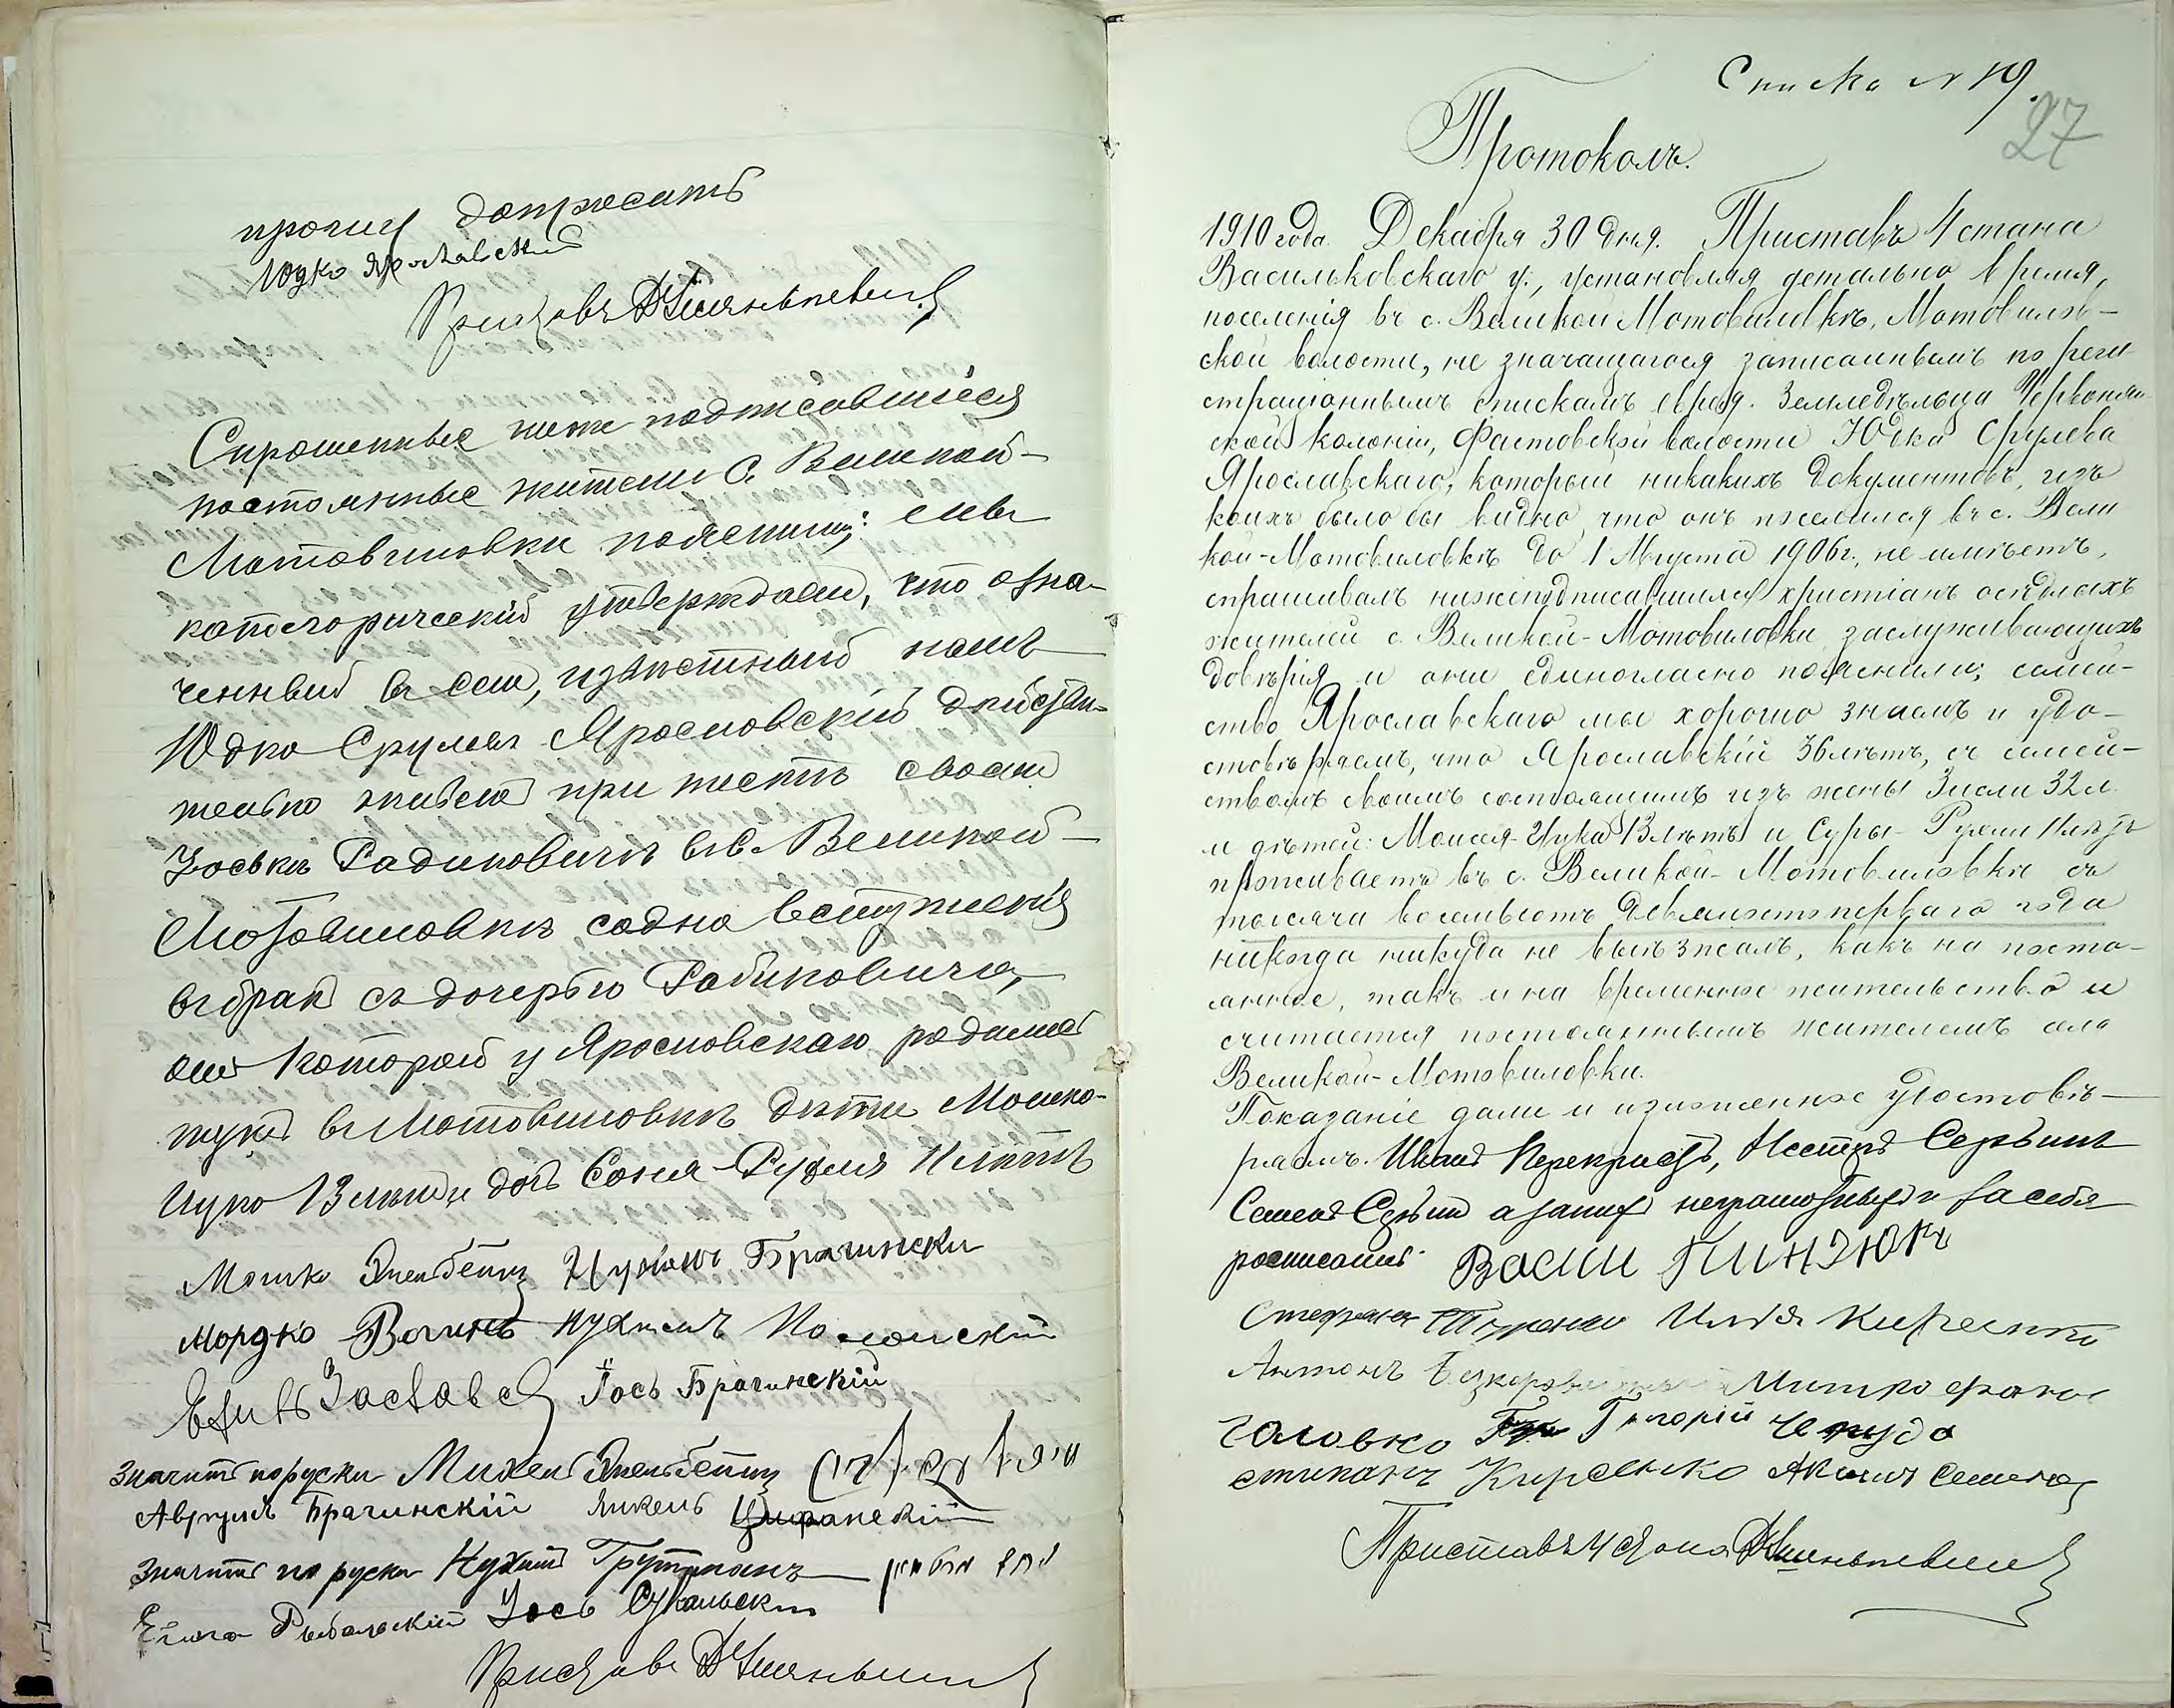 прошу допросить
Юдко Ярославский
Приставъ
Спрошенные ниже подписавшіеся
постоянные жители С. Великой-
Мотовиловки пояснили: мы
категорическій утверждаем, что озна-
ченный въ сем, извѣстный намъ
Юдко Срулевъ Ярославскій дѣйстви-
тельно живет при тестѣ своем
Іоськѣ Рабиновичѣ въ с. Великой-
Мотовиловкѣ со дна вступленія
въ брак съ дочерью Рабиновича,
от которой у Ярославскаго родилис
тут въ Мотовиловкѣ дѣти Мошко-
Ицко 13 лѣт и дочь Сония-Рухля 11 лѣтъ
Мошко Эпельбеймъ Нухимъ Брагински
Мордко Вагинъ Нухимъ
Заславс Іось Брагинскій
Значитъ поруски Михель Эпельбеймъ
Аврумъ Брагинскій Янкель
Значитъ по руски Нухим Трутманъ
Рыбальскій Іось Сукальски
Приставъ
Списка N 19.
27
Протоколъ.
1910 года Декабря 30 дня. Приставъ 4 стана
Васильковскаго у., установляя детально время,
поселенія въ с. Великой Мотовиловкѣ, Мотовилов-
ской волости, не значащагося записаннымъ по реги-
страціоннымъ спискамъ евр. Земледѣльца Червонян-
ской колоніи, Фастовской волости Юдка Срулева
Ярославскаго, который никакихъ документовъ, изъ
коихъ было бы видно, что онъ поселился въ с. Вели
кой-Мотовиловкѣ до 1 Августа 1906 г., не имѣетъ,
спрашивалъ нижеподписавшихся христіанъ осѣдлыхъ
жителей с. Великой-Мотовиловки, заслуживающихъ
довѣрія и они единогласно пояснили; семей-
ство Ярославскаго мы хорошо знаемъ и удо-
стовѣряемъ, что Ярославскій 36 лѣтъ, съ семей-
ствомъ своимъ состоящимъ изъ жены Энели 32 л.
и дѣтей: Моисея-Ицка 13 лѣтъ и Суры-Рухли 11 лѣтъ
проживаетъ въ с. Великой-Мотовиловкѣ съ
тысяча восемьсотъ девяностоперваго года
никогда никуда не выѣзжалъ, какъ на посто-
янное, такъ и на временное жительство и
считается постояннымъ жителемъ села
Великой-Мотовиловки.
Показаніе дали и изложенное удостовѣ-
ряемъ. Иван Перехрист, Нестеръ Сербинъ
Семенъ Сербин а за них неграмотных и за себя
росписался Васил Пинзюкъ
Стефанъ Илья Киреенко
Антонъ Митрофанъ
Головко Григорій Чепуда
степанъ Кирсенко Акимъ Семено
Приставъ 4 стана